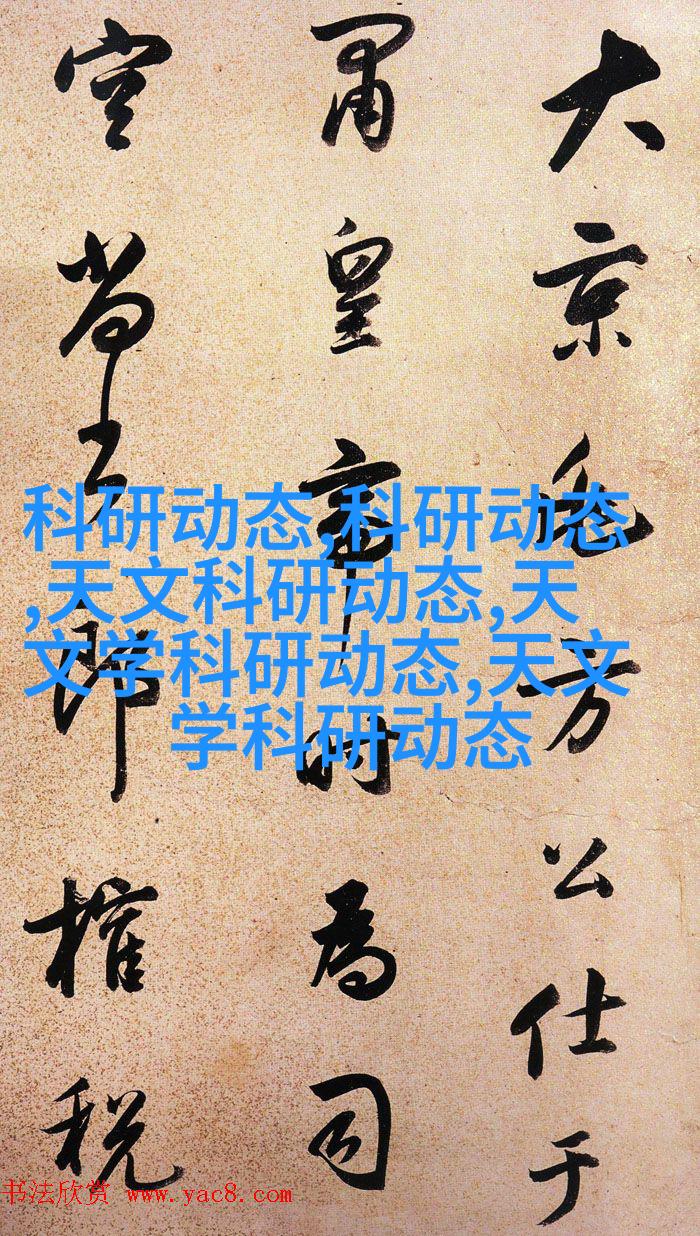 大京兆方公仕于
肅皇帝時為司
空尚書郎榷税
科研动态,科研动态
,天文科研动态,天
文学科研动态,天文
学科研动态
书法欣赏 www.yac8.com